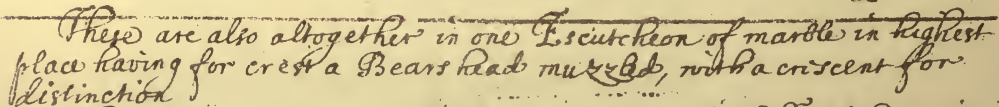 These are also altogether in one Escutcheon of marble in highest
place having for crest a Bears head muzzled, with a criscent for
distinction